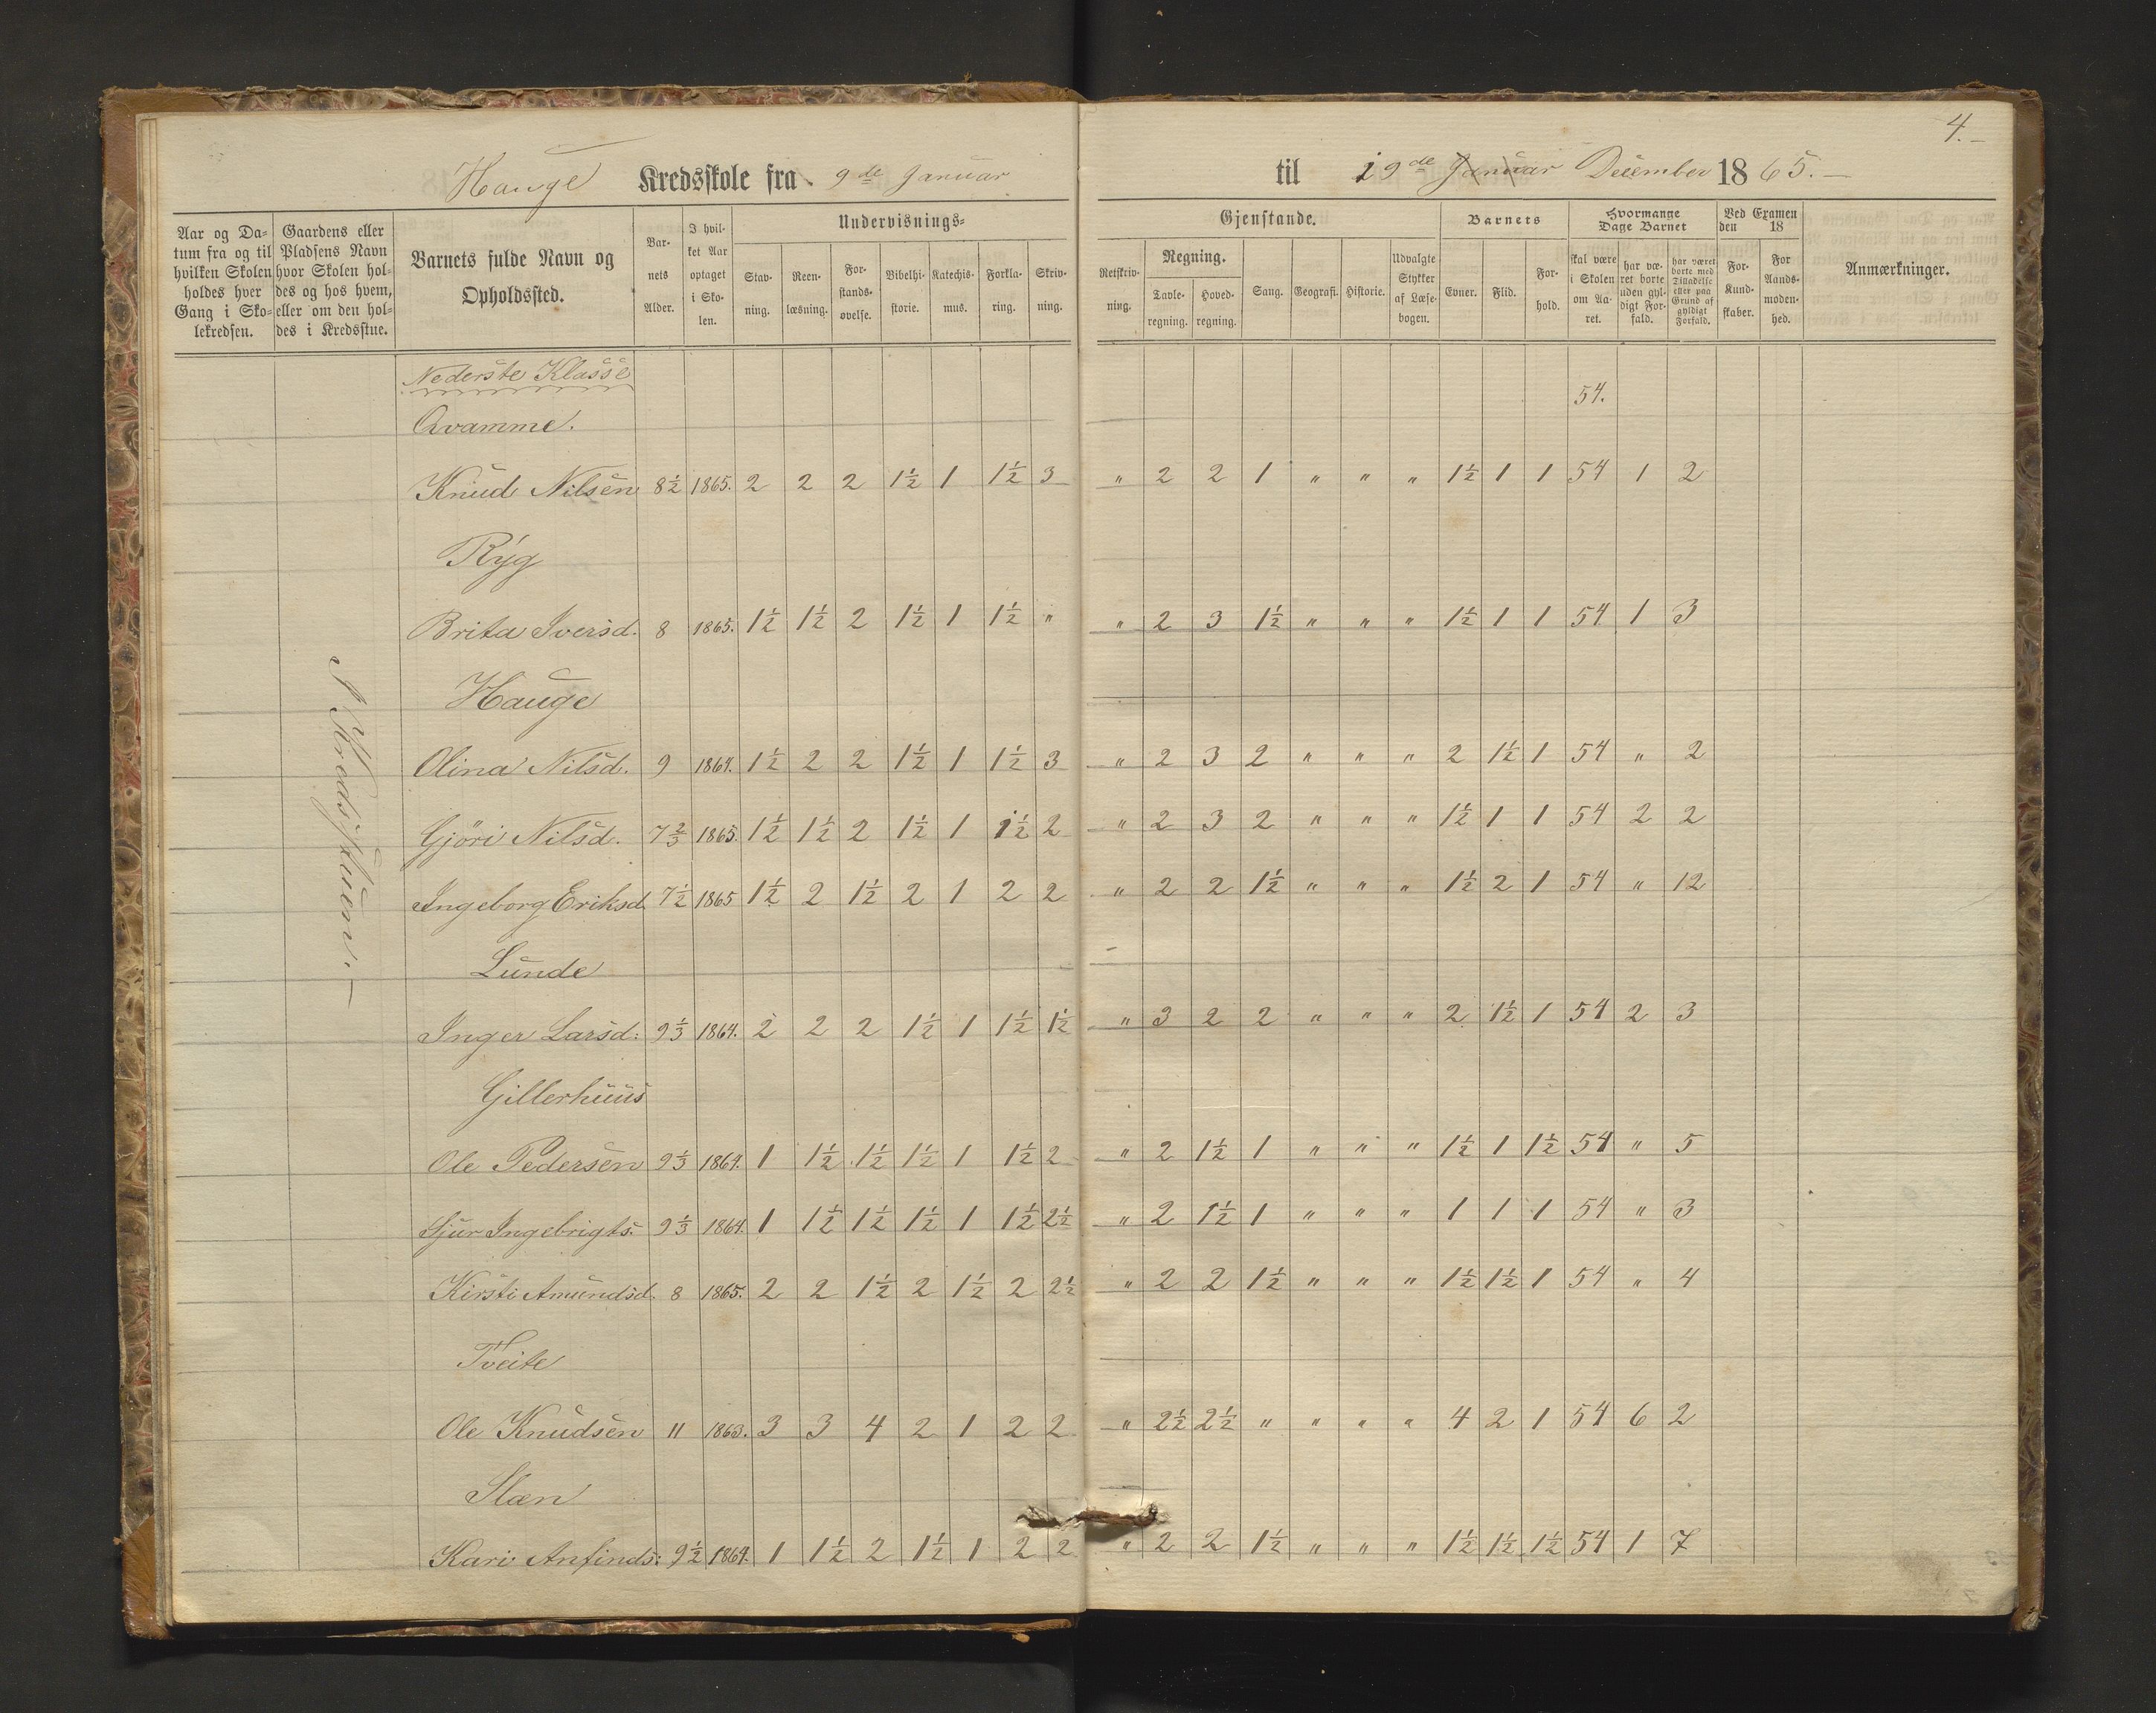 4.
Hauge Kredsskole fra 9de Januar til 19de Januar December 1865.
Aar og Datum fra og til hvilken Skolen holdes hver Gang i Skolekredsen.
Gaardens eller Pladsens Navn hvor Skolen holdes og hos hvem, eller om den holdes i Kredsstue.
Barnets fulde Navn og Opholdssted.
Barnets Alder.
I hvilket Aar optaget i Skolen.
Undervisnings-Gjenstande.
Stavning. Reenlæsning. Forstandsøvelse. Bibelhistorie. Katechismus. Forklaring. Skrivning.
Retskrivning. Regning. Tavleregning. Hovedregning. Sang. Geografi. Historie. Udvalgte Stykker af Læsebogen.
Barnets Evner. Flid. Forhold.
Hvormange Dage Barnet
skal være i Skolen om Aaret. har været borte uden gyldigt Forfald. har været borte med Tilladelse eller paa Grund af gyldigt Forfald.
Ved Examen den 18
For Kundskaber. For Aandsmodenhed.
Anmærkninger.
I Kredsstuen.
Nederste Klasse 54.
Qvamme.
Knud Nilsen 8½ 1865. 2 2 2 1½ 1 1½ 3 " 2 2 1 " " " 1½ 1 1 54 1 2
Ryg
Brita Iversd. 8 1865. 1½ 1½ 2 1½ 1 1½ " " 2 3 1½ " " " 1½ 1 1 54 1 3
Hauge
Olina Nilsd. 9 1864. 1½ 2 2 1½ 1 1½ 3 " 2 3 2 " " " 2 1½ 1 54 " 2
Gjöri Nilsd. 7⅔ 1865. 1½ 1½ 2 1½ 1 1½ 2 " 2 3 2 " " " 1½ 1 1 54 2 2
Ingeborg Eriksd 7½ 1865 1½ 2 1½ 2 1 2 2 " 2 2 1½ " " " 1½ 2 1 54 " 12
Lunde
Inger Larsd: 9⅓ 1864. 2 2 2 1½ 1 1½ 1½ " 3 2 2 " " " 2 1½ 1 54 2 3
Gillerhuus
Ole Pedersen 9⅓ 1864. 1 1½ 1½ 1½ 1 1½ 2 " 2 1½ 1 " " " 1½ 1 1½ 54 " 5
Sjur Ingebrigts: 9⅓ 1864. 1 1½ 1½ 1½ 1 1½ 2½ " 2 1½ 1 " " " 1 1 1 54 " 3
Kirsti Amundsd. 8 1865. 2 2 1½ 2 1½ 2 2½ " 2 2 1½ " " " 1½ 1½ 1 54 " 4
Tveite
Ole Knudsen 11 1863. 3 3 4 2 1 2 2 " 2½ 2½ " " " " 4 2 1 54 6 2
Slæn
Kari Anfinds: 9½ 1864. 1 1½ 2 1½ 1 2 2 " 2 2 1½ " " " 1½ 1½ 1½ 54 1 7